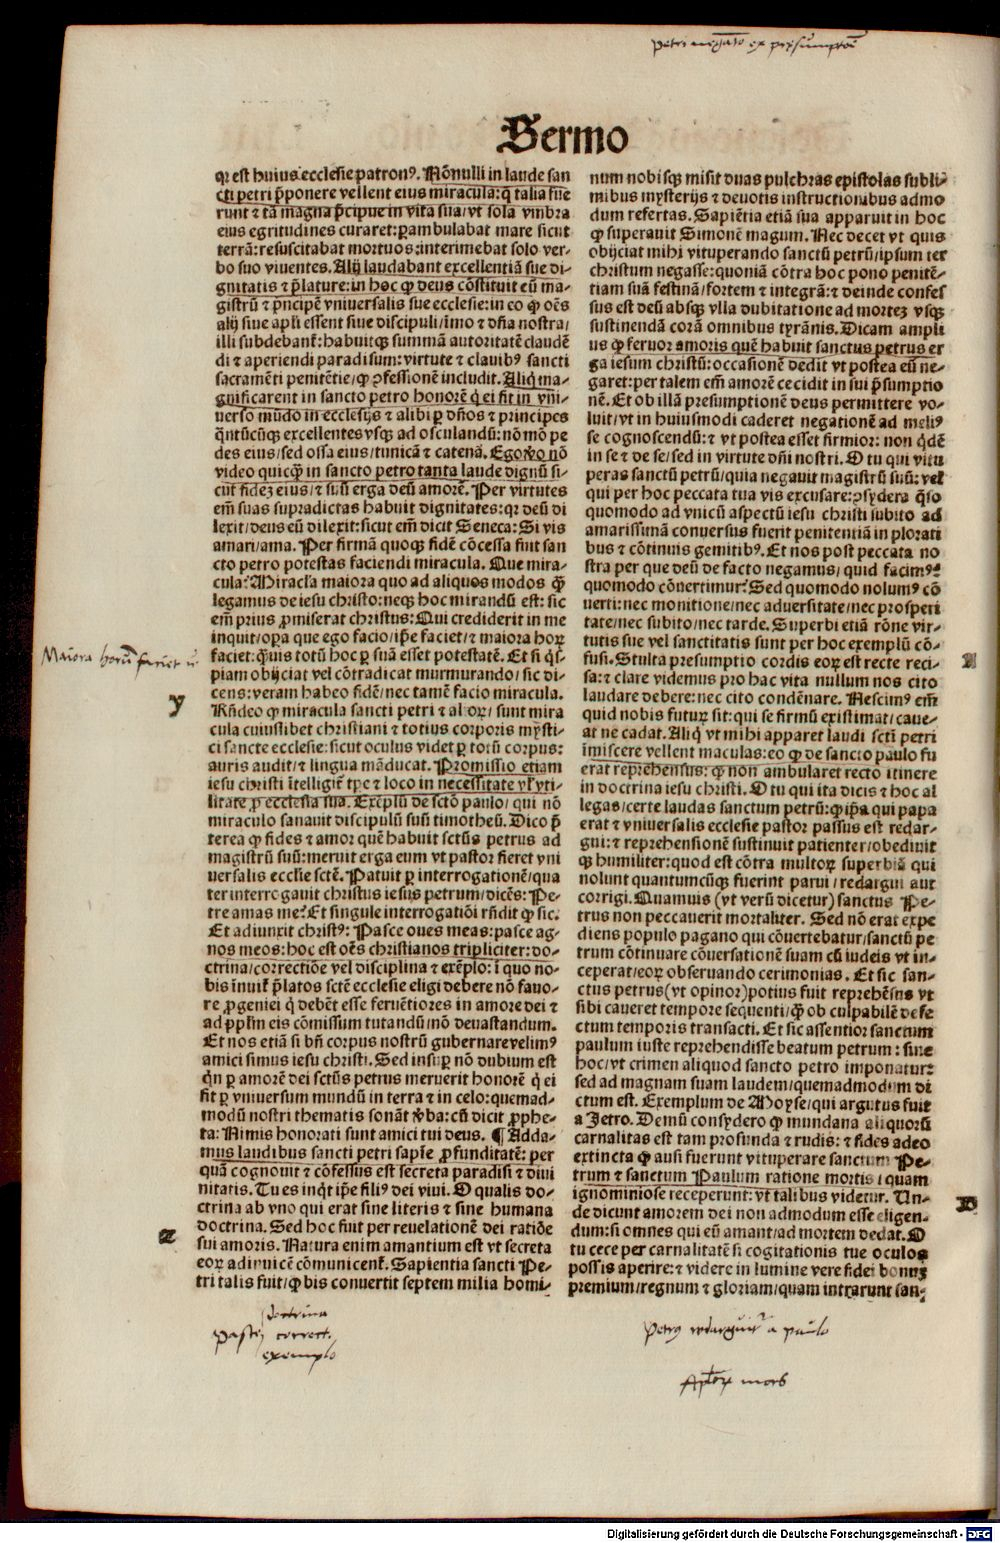 Petri negatio ex presumptione
Sermo
qꝛ est huius ecclesie patronꝰ. Nōnulli in laude san
cti petri p̄ponere vellent eius miracula: q̄ talia fue
runt ⁊ tā magna p̄cipue in vita sua/ vt sola vmbra
eius egritudines curaret: ꝑambulabat mare sicut
terrā: resuscitabat mortuos: interimebat solo ver-
bo suo viuentes. Alij laudabant excellentiā sue di-
gnitatis ⁊ p̄lature: in hoc ꝙ deus cōstituit eū ma-
gistrū ⁊ p̄ncipē vniuersalis sue ecclesie: in eo ꝙ oēs
alij siue apl̄i essent siue discipuli/ imo ⁊ dn̄a nostra/
illi subdebanť: habuitqꝫ summā autoritatē claudē
di ⁊ aperiendi paradisum: virtute ⁊ clauibꝰ sancti
sacramēti penitētie/ ꝙ ↄfessionē includit. Aliq̇ ma-
gnificarent in sancto petro honorē q̇ ei fit in vni-
uerso mūdo in ecclesijs ⁊ alibi ꝑ dn̄os ⁊ principes
q̄ntūcūqꝫ excellentes vsqꝫ ad osculandū: nō mō pe
des eius/ sed ossa eius/ tunicā ⁊ catenā. Ego v̓o nō
video quicq̄ꝫ in sancto petro tanta laude dignū si-
cut fidez eius/ ⁊ suū erga deū amorē. Per virtutes
em̄ suas supradictas habuit dignitates: qꝛ deū di
lexit/ deus eū dilexit: sicut em̄ dicit Seneca: Si vis
amari/ ama. Per firmā quoqꝫ fidē cōcessa fuit san
cto petro potestas faciendi miracula. Que mira-
cula? Miracl̓a maiora quo ad aliquos modos q̄ꝫ
legamus de iesu christo: neqꝫ hoc mirandū est: sic
em̄ prius ꝓmiserat christus: Qui crediderit in me
inquit/ oꝑa que ego facio/ ip̄e faciet/ ⁊ maiora hoꝝ
faciet: q̄uis totū hoc ꝑ suā esset potestatē. Et si q̇s-
piam obijciat vel cōtradicat murmurando/ sic di-
cens: veram habeo fidē/ nec tamē facio miracula.
Rn̄deo ꝙ miracula sancti petri ⁊ alioꝝ/ sunt mira
cula cuiuslibet christiani ⁊ totius corporis mysti-
ci sancte ecclesie: sicut oculus videt ꝑ totū corpus:
auris audit/ ⁊ lingua māducat. Promissio etiam
iesu christi ītelligiť tꝑe ⁊ loco in necessitate vl̓ vti-
litate ꝓ ecclesia sua. Exēplū de sctō paulo/ qui nō
miraculo sanauit discipulū suū timotheū. Dico p̄
terea ꝙ fides ⁊ amor quē habuit sctūs petrus ad
magistrū suū: meruit erga eum vt pastor fieret vni
uersalis eccl̓ie sctē. Patuit ꝑ interrogationē/ qua
ter interrogauit christus iesus petrum/ dicēs: Pe-
tre amas me? Et singule interrogatiōi rn̄dit ꝙ sic.
Et adiunxit christꝰ: Pasce oues meas: pasce ag-
nos meos: hoc est oēs christianos tripliciter: do-
ctrina/ correctiōe vel disciplina ⁊ exēplo: ī quo no-
bis īnuiť p̄latos sctē ecclesie eligi debere nō fauo-
re ꝓgeniei q̇ debēt esse feruētiores in amore dei ⁊
ad ppl̓m eis cōmissum tutandū/ nō deuastandum.
Et nos etiā si bn̄ corpus nostrū gubernare velimꝰ
amici simus iesu christi. Sed insuꝑ nō dubium est
q̇n ꝑ amorē dei sctūs petrus meruerit honorē q̇ ei
fit ꝑ vniuersum mundū in terra ⁊ in celo: quemad-
modū nostri thematis sonāt v̓ba: cū dicit ꝓphe-
ta: Nimis honorati sunt amici tui deus. ¶ Adda-
mus laudibus sancti petri sapīe ꝓfunditatē: per
quā cognouit ⁊ cōfessus est secreta paradisi ⁊ diui
nitatis. Tu es inq̇t ip̄e filiꝰ dei viui. O qualis do-
ctrina ab vno qui erat sine literis ⁊ sine humana
doctrina. Sed hoc fuit per reuelationē dei ratiōe
sui amoris. Natura enim amantium est vt secreta
eoꝝ adinuicē cōmunicenť. Sapientia sancti Pe-
tri talis fuit/ ꝙ bis conuertit septem milia homi-
Maiora horum faciet
y
z
doctrina
Past correct.
exemplo
num nobisqꝫ misit duas pulchras epistolas subli-
mibus mysterijs ⁊ deuotis instructionibus admo
dum refertas. Sapiētia etiā sua apparuit in hoc
ꝙ superauit Simonē magum. Nec decet vt quis
obijciat mihi vituperando sanctū petrū/ ipsum ter
christum negasse: quoniā cōtra hoc pono penitē-
tiam suā festinā/ fortem ⁊ integrā: ⁊ deinde confes
sus est deū absqꝫ vlla dubitatione ad mortez vsqꝫ
sustinendā corā omnibus tyrānis. Dicam ampli
us ꝙ feruor amoris quē habuit sanctus petrus er
ga iesum christū: occasionē dedit vt postea eū ne-
garet: per talem em̄ amorē cecidit in sui p̄sumptio
nē. Et ob illā presumptionē deus permittere vo-
luit/ vt in huiusmodi caderet negationē ad meliꝰ
se cognoscendū: ⁊ vt postea esset firmior: non q̇dē
in se ⁊ de se/ sed in virtute dn̄i nostri. O tu qui vitu
peras sanctū petrū/ quia negauit magistrū suū: vel
qui per hoc peccata tua vis excusare: ↄsydera q̄so
quomodo ad vnicū aspectū iesu christi subito ad
amarissimā conuersus fuerit penitentiā in plorati
bus ⁊ cōtinuis gemitibꝰ. Et nos post peccata no
stra per que deū de facto negamus/ quid facimꝰ?
quomodo cōuertimur? Sed quomodo nolumꝰ cō
uerti: nec monitione/ nec aduersitate/ nec prosperi
tate/ nec subito/ nec tarde. Superbi etiā rōne vir-
tutis sue vel sanctitatis sunt per hoc exemplū cō-
fusi. Stulta presumptio cordis eoꝝ est recte reci-
sa: ⁊ clare videmus pro hac vita nullum nos cito
laudare debere: nec cito condēnare. Nescimꝰ em̄
quid nobis futuꝝ sit: qui se firmū existimat/ caue-
at ne cadat. Aliq̇ vt mihi apparet laudi sctī petri
īmiscere vellent maculas: eo ꝙ de sancto paulo fu
erat reprehensus: ꝙ non ambularet recto itinere
in doctrina iesu christi. O tu qui ita dicis ⁊ hoc al
legas/ certe laudas sanctum petrū: ꝙ ip̄a qui papa
erat ⁊ vniuersalis ecclesie pastor passus est redar-
gui: ⁊ reprehensionē sustinuit patienter/ obediuit
qꝫ humiliter: quod est cōtra multoꝝ superbiā qui
nolunt quantumcūqꝫ fuerint parui/ redargui aut
corrigi. Quamuis (vt verū dicetur) sanctus Pe-
trus non peccauerit mortaliter. Sed nō erat expe
diens populo pagano qui cōuertebatur/ sanctū pe
trum cōtinuare cōuersationē suam cū iudeis vt in-
ceperat/ eoꝝ obseruando cerimonias. Et sic san-
ctus petrus (vt opinor) potius fuit reprehēsus vt
sibi caueret tempore sequenti/ q̄ꝫ ob culpabilē defe
ctum temporis transacti. Et sic assentior sanctum
paulum iuste reprehendisse beatum petrum: sine
hoc/ vt crimen aliquod sancto petro imponatur:
sed ad magnam suam laudem/ quemadmodum di
ctum est. Exemplum de Moyse/ qui argutus fuit
a Jetro. Demū consydero ꝙ mundana aliquorū
carnalitas est tam profunda ⁊ rudis: ⁊ fides adeo
extincta ꝙ ausi fuerunt vituperare sanctum Pe-
trum ⁊ sanctum Paulum ratione mortis/ quam
ignominiose receperunt: vt talibus videtur. Un-
de dicunt amorem dei non admodum esse eligen-
dum: si omnes qui eū amant/ ad mortem dedat. O
tu cece per carnalitatē si cogitationis tue oculos
possis aperire: ⁊ videre in lumine vere fidei bonuz
premium/ regnum ⁊ gloriam/ quam intrarunt san-
A
B
Petrus redarguitur a paulo
Aptoꝝ mors
Digitalisierung gefördert durch die Deutsche Forschungsgemeinschaft - DFG